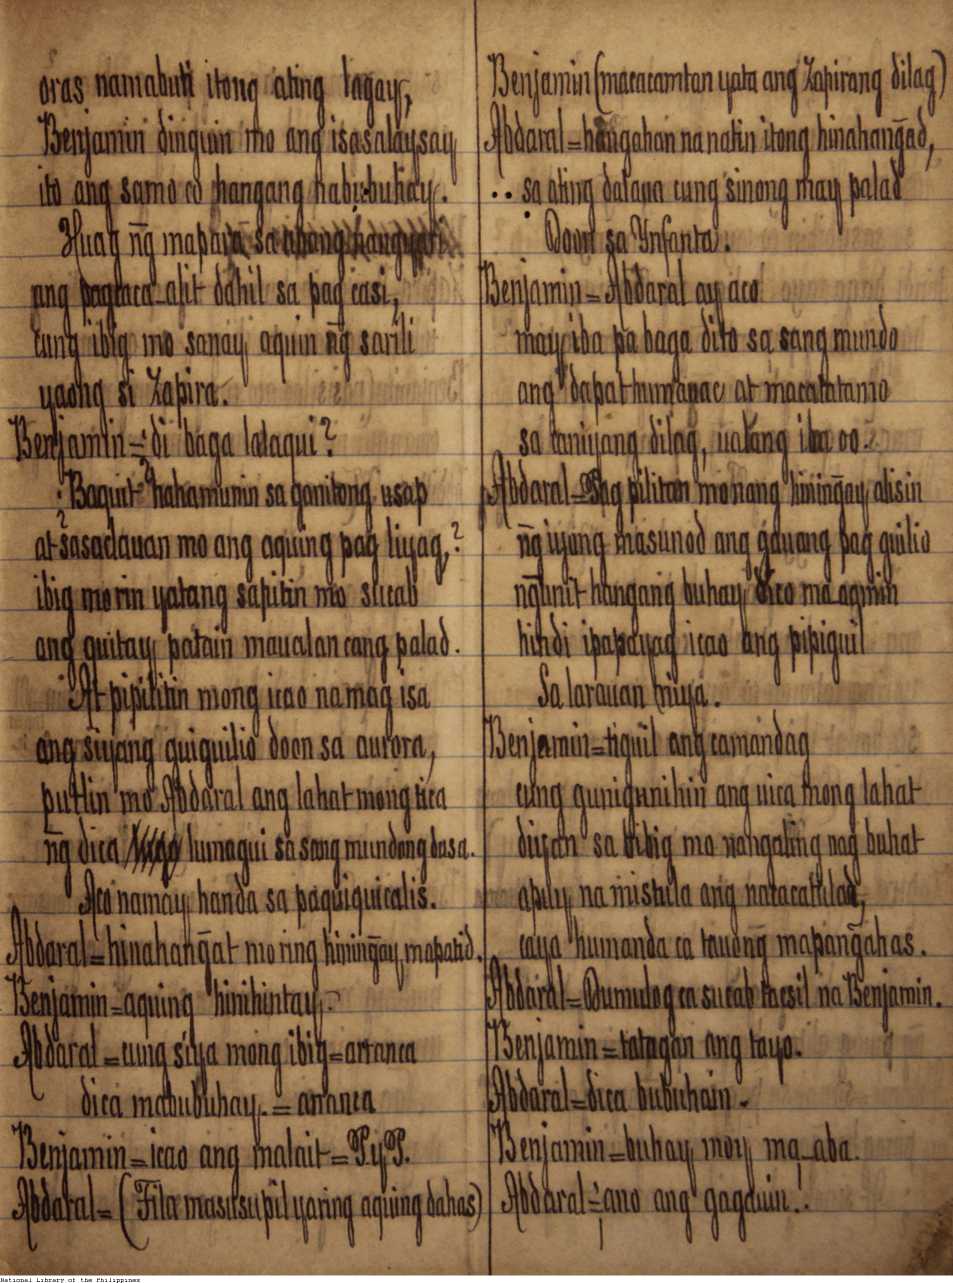 oras namabuti itong ating lagay,
Benjamin dinguin mo ang isasalaysay
ito ang samo co hangang nabubuhay.
Huag ñg mapara sa
ang pagcaca-alit dahil sa pag casi,
cung ibig mo sanay aquin ñg sarili
yaong si Zapira.
Benjamin=di baga lalaqui?
Baquit hahamunin sa ganitong usap
at sasaclauan mo ang aquing pag liyag,?
ibig mo rin yatang sapitin mo sucab
ang quitay patain maualan cang palad.
At pipilitin mong icao na mag isa
ang siyang guiguilio doon sa aurora,
putlin mo Abdaral ang lahat mong tica
ñg dica lumagui sa sang mundong basa.
Aco namay handa sa paquiquicalis.
Abdaral=hinahang̃at mo ring hining̃ay mapatid.
Benjamin=aquing hinihintay
Abdaral=cung siya mong ibig=arranca
dica mabubuhay.=arranca
Benjamin=icao ang malait=P.y P.
Abdaral=(Fila masusupil yaring aquing dahas)
Benjamin(macacamtan yata ang Zapirang dilag)
Abdaral=hang̃ahan na natin itong hinahang̃ad,
sa ating dalaua cung sinong may palad
Doon sa Ynfanta.
Benjamin=Abdaral ay aco
may iba pa baga dito sa sang mundo
ang dapat humanac at macatatamo
sa taniyang dilag, ualang iba oo.
Abdaral=Pag pilitan mo nang hining̃ay alisin
ñg iyong masunod ang gauang pag guilio
ng̃unit hangang buhay dico ma-aamin
hindi ipapayag icao ang pipiguil
Sa larauan niya.
Benjamin=tiguil ang camandag
cung gunigunihin ang uica mong lahat
diyan sa bibig mo nangaling nag buhat
apuy na mistula ang nacacatulad,
caya humanda ca tauong mapang̃ahas.
Abdaral=Dumulog ca sucab tacsil na Benjamin.
Benjamin=tatagan ang tayo.
Abdaral=dica bubuhain.
Benjamin=buhay moy ma-aba.
Abdaral=¡ano ang gagauin!.
National Library of the Philippines